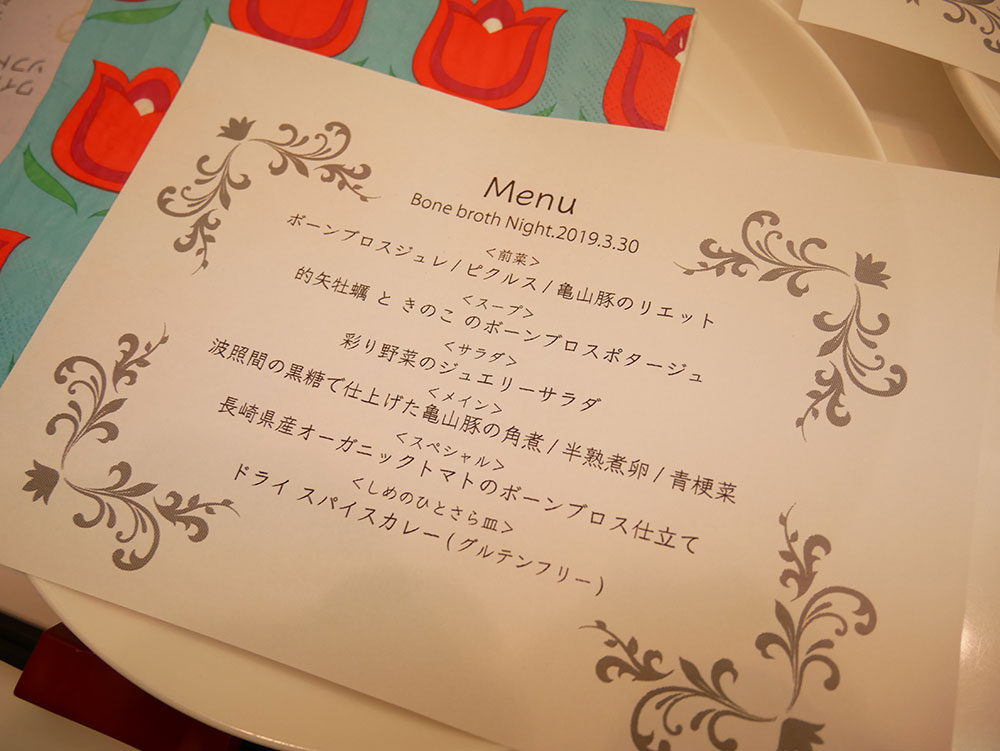 Menu
Bone broth Night.2019.3.30
<前菜>
ボーンブロスジュレ/ピクルス/亀山豚のリエット
<スープ>
的矢牡蠣 と きのこ のボーンブロスポタージュ
<サラダ>
彩り野菜のジュエリーサラダ
<メイン>
波照間の黒糖で仕上げた亀山豚の角煮/半熟煮卵/青梗菜
<スペシャル>
長崎県産オーガニックトマトのボーンブロス仕立て
<しめのひとさら皿>
ドライ スパイスカレー(グルテンフリー)
ワイ
ソフト